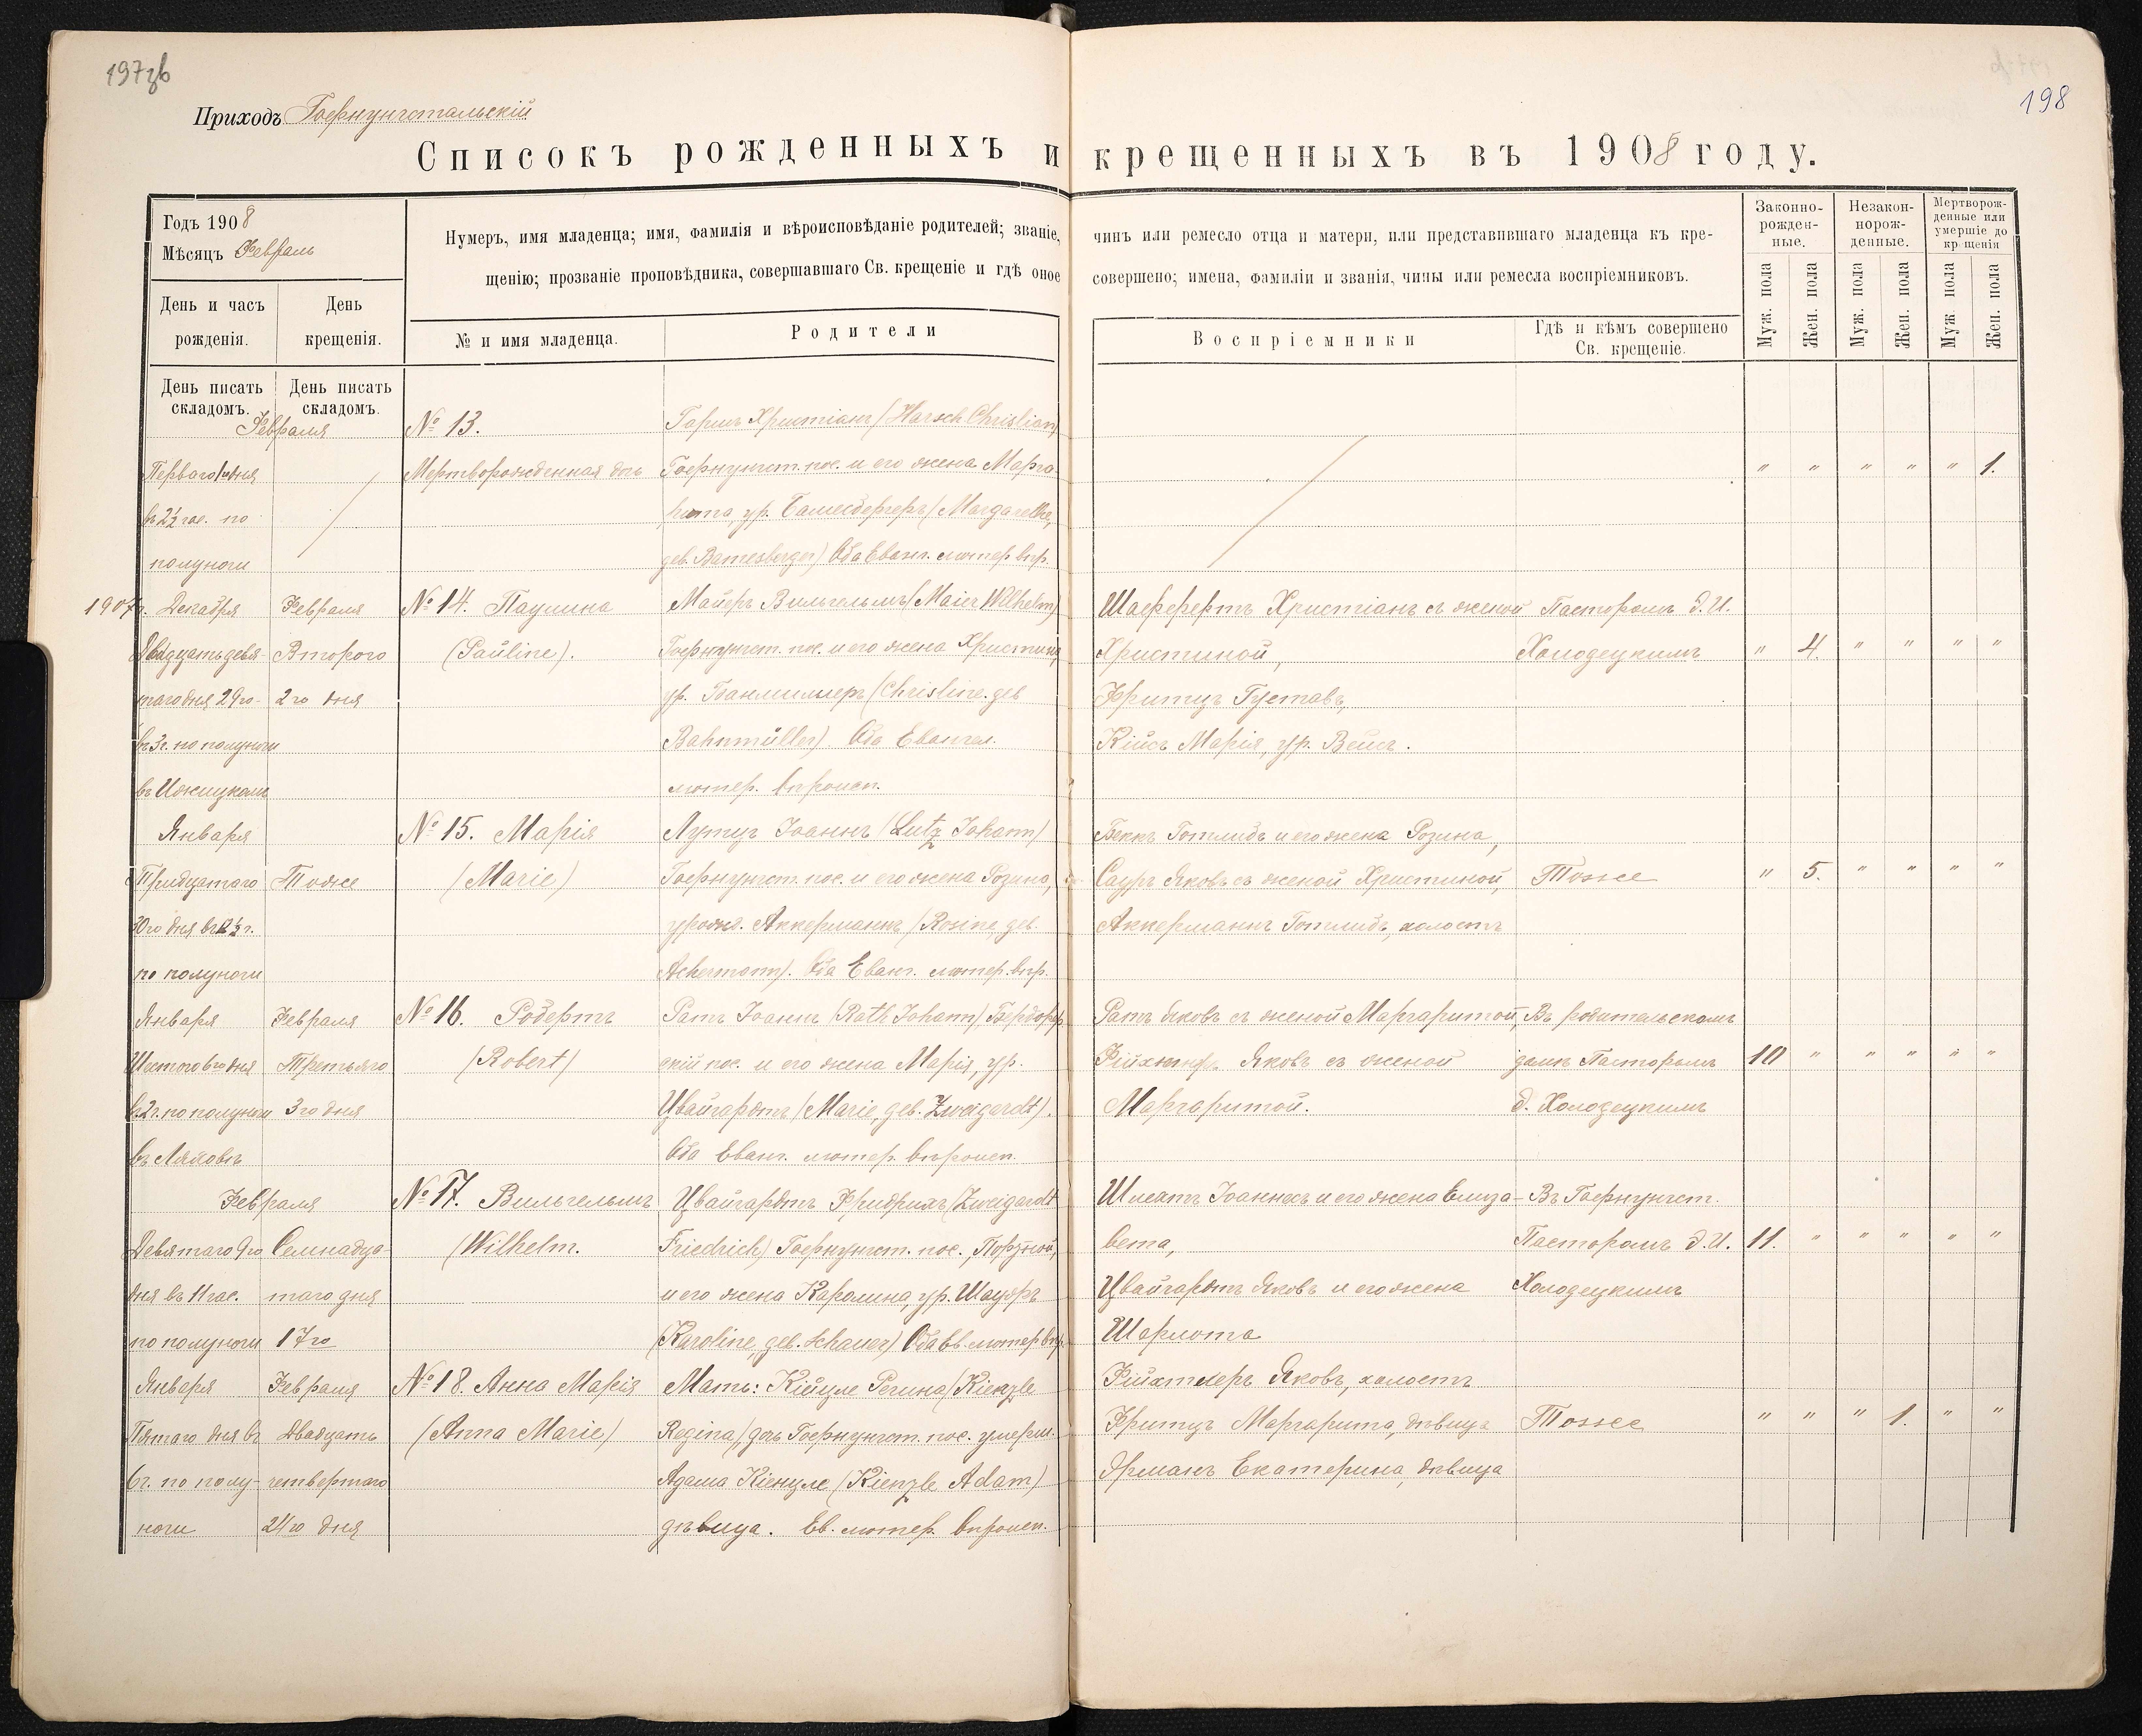 197зв
198
Приходъ Гофнунгстальскій
Списокъ рожденныхъ и крещенныхъ въ 1908 году.
Годъ 1908
Мѣсяцъ Февраль
День и часъ рожденія.
День крещенія.
Нумеръ, имя младенца; имя, фамилія и вѣроисповѣданіе родителей; званіе, чинъ или ремесло отца и матери, или представившаго младенца къ кре-
щенію; прозваніе проповѣдника, совершавшаго Св. крещеніе и гдѣ оное совершено; имена, фамиліи и званія, чины или ремесла воспріемниковъ.
№ и имя младенца.
Родители
Воспріемники
Гдѣ и кѣмъ совершено
Св. крещеніе.
Законно-
рожден-
ные.
Незакон-
норож-
денные.
Мертворож-
денные или
умершіе до
крщенія
Муж. пола
Жен. пола
Муж. пола
Жен. пола
Муж. пола
Жен. пола
День писать
складомъ.
День писать
складомъ.
Февраля
Перваго 1го дня
въ 2½ час. по
полуночи
№ 13.
Мертворожденная дочь
Гаршъ Христіанъ (Harsch Christian)
Гофнунгст. пос. и его жена Марга-
рита, ур. Бамесбергеръ (Margarethe,
geb. Bamesberger) Оба Еванг. лютер. вѣр.
" " " " " 1.
1907 г. Декабря
Двадцать девя-
таго дня 29го
въ 3 ч. по полуночи
въ
Февраля
Второго
2го дня
№ 14. Паулина
(Pauline).
Майеръ Вильгельмъ (Maier Wilhelm)
Гофнунгст. пос. и его жена Христина,
ур. Банмиллеръ (Christine. geb
Bahnmüller). Оба Евангел.
лютер. вѣроисп.
Шаефертъ Христіанъ съ женой
Христиной,
Фритцъ Густавъ,
Кійсъ Марія, ур. Вейсъ.
Пасторомъ Э. И.
Холодецкимъ
" 4. " " " "
Января
Тридцатаго
30го дня въ 12½ ч.
по полуночи
Тоже
№ 15. Марія
(Marie)
Лутцъ Іоаннъ (Lutz Johann)
Гофнунгст. пос. и его жена Розина,
урожд. Аккерманнъ (Rosine, geb.
Ackermann). Оба Еванг. лютер. вѣр.
Беккъ Готлибъ и его жена Розина,
Сауръ Яковъ съ женой Христиной,
Аккерманнъ Готлибъ, холостъ
Тоже
" 5. " " " "
Января
Шестого 6го дня
въ 2 ч. по полуночи
въ
Февраля
Третьяго
3го дня
№ 16. Робертъ
(Robert)
Ратъ Іоаннъ (Rath Johann)
скій пос. и его жена Марія, ур.
Цвайгардтъ (Marie, geb. Zweigardt).
Оба Еванг. лютер. вѣроисп.
Ратъ Яковъ съ женой Маргаритой,
Яковъ съ женой
Маргаритой.
Въ родительскомъ
домѣ Пасторомъ
Э. Холодецкимъ
10 " " " " "
Февраля
Девятаго 9го
дня въ 11 час.
по полуночи
Семнадца-
таго дня
17го
№ 17. Вильгельмъ
(Wilhelm.
Цвайгардтъ Фридрихъ (Zweigardt
Friedrich) Гофнунгст. пос., Портной,
и его жена Каролина, ур. Шауэръ
(Karoline, geb. Schauer) Оба Ев. лютер. вѣр.
Шмехтъ Іоаннесъ и его жена Елиза-
вета,
Цвайгардтъ Яковъ и его жена
Шарлота
Въ Гофнунгст.
Пасторомъ Э. И.
Холодецкимъ
11. " " " " "
Января
Пятаго дня въ
6 ч. по полу-
ночи
Февраля
Двадцать
четвертаго
24го дня
№ 18. Анна Марія
(Anna Marie)
Мать: Кіенцле Регина (Kienzle
Regina), дочь Гофнунгст. пос. умерш.
Адама Кіенцле (Kienzle Adam)
дѣвица. Ев. лютер. вѣроисп.
Яковъ, холостъ
Фритцъ Маргарита, дѣвица
Эрманъ Екатерина, дѣвица
Тоже
" " " 1. " "